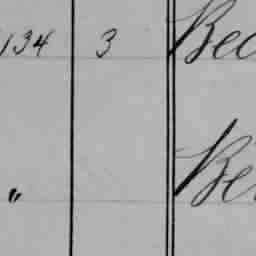 134 3 Bec
" Be